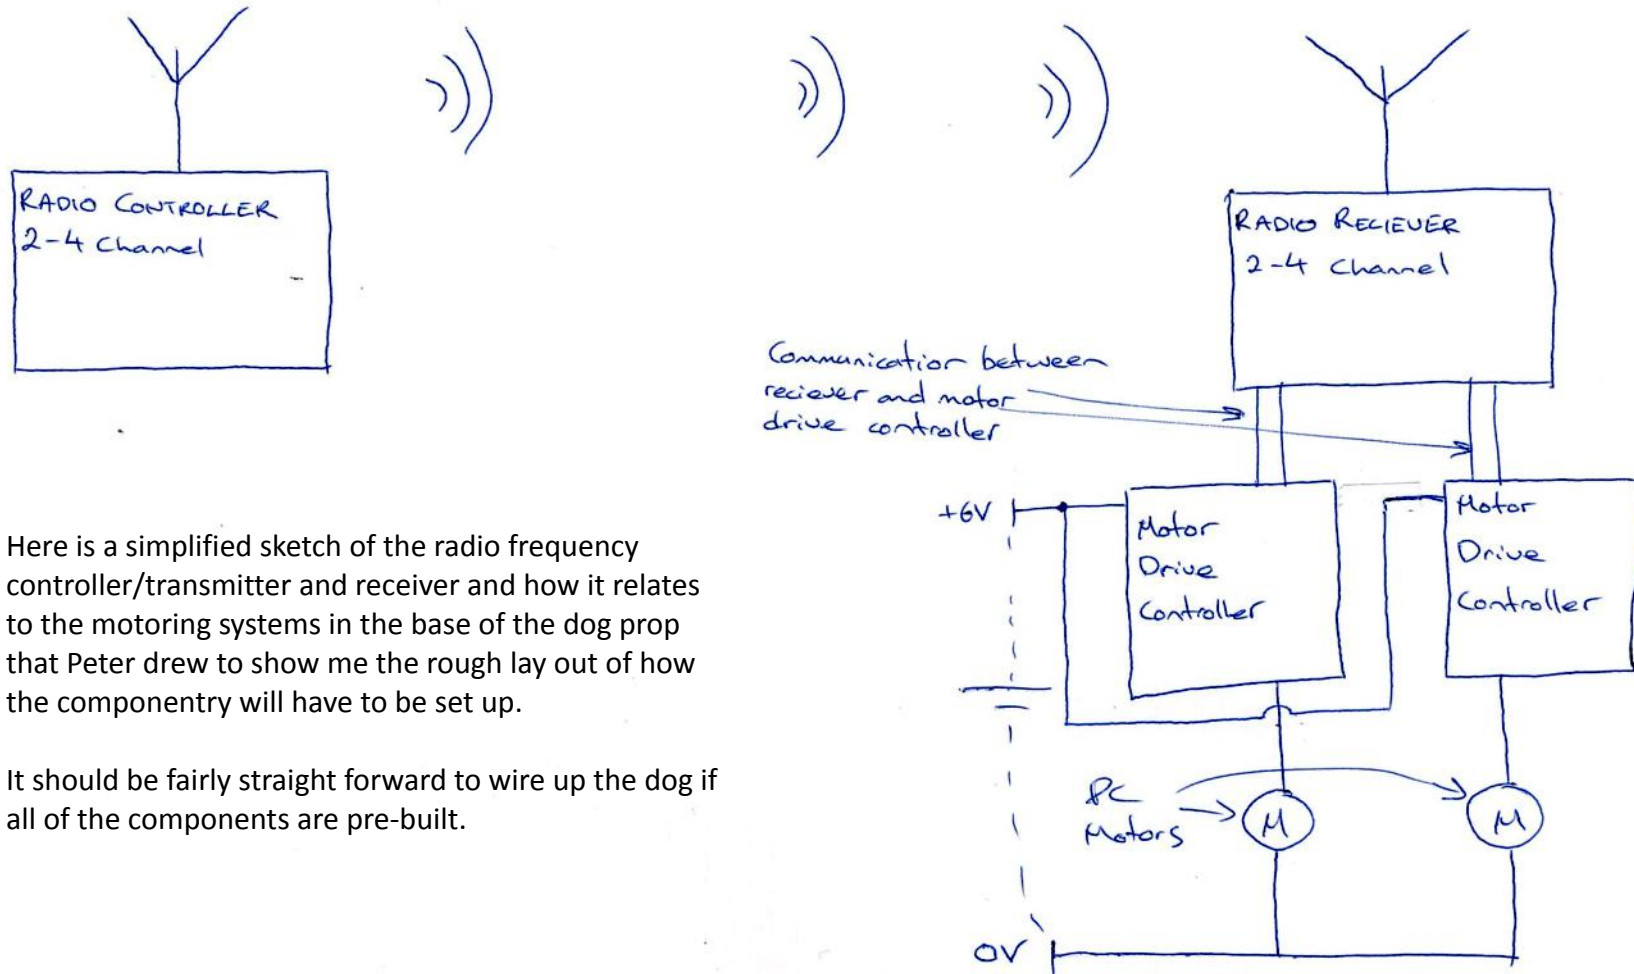 RADIO CONTROLLER
2-4 Channel
RADIO RECIEVER
2-4 Channel
Communication between
reciever and motor
drive controller
+6V
Motor
Drive
Controller
Motor
Drive
Controller
Here is a simplified sketch of the radio frequency
controller/transmitter and receiver and how it relates
to the motoring systems in the base of the dog prop
that Peter drew to show me the rough lay out of how
the componentry will have to be set up.
It should be fairly straight forward to wire up the dog if
all of the components are pre-built.
DC
Motors
M
M
0V